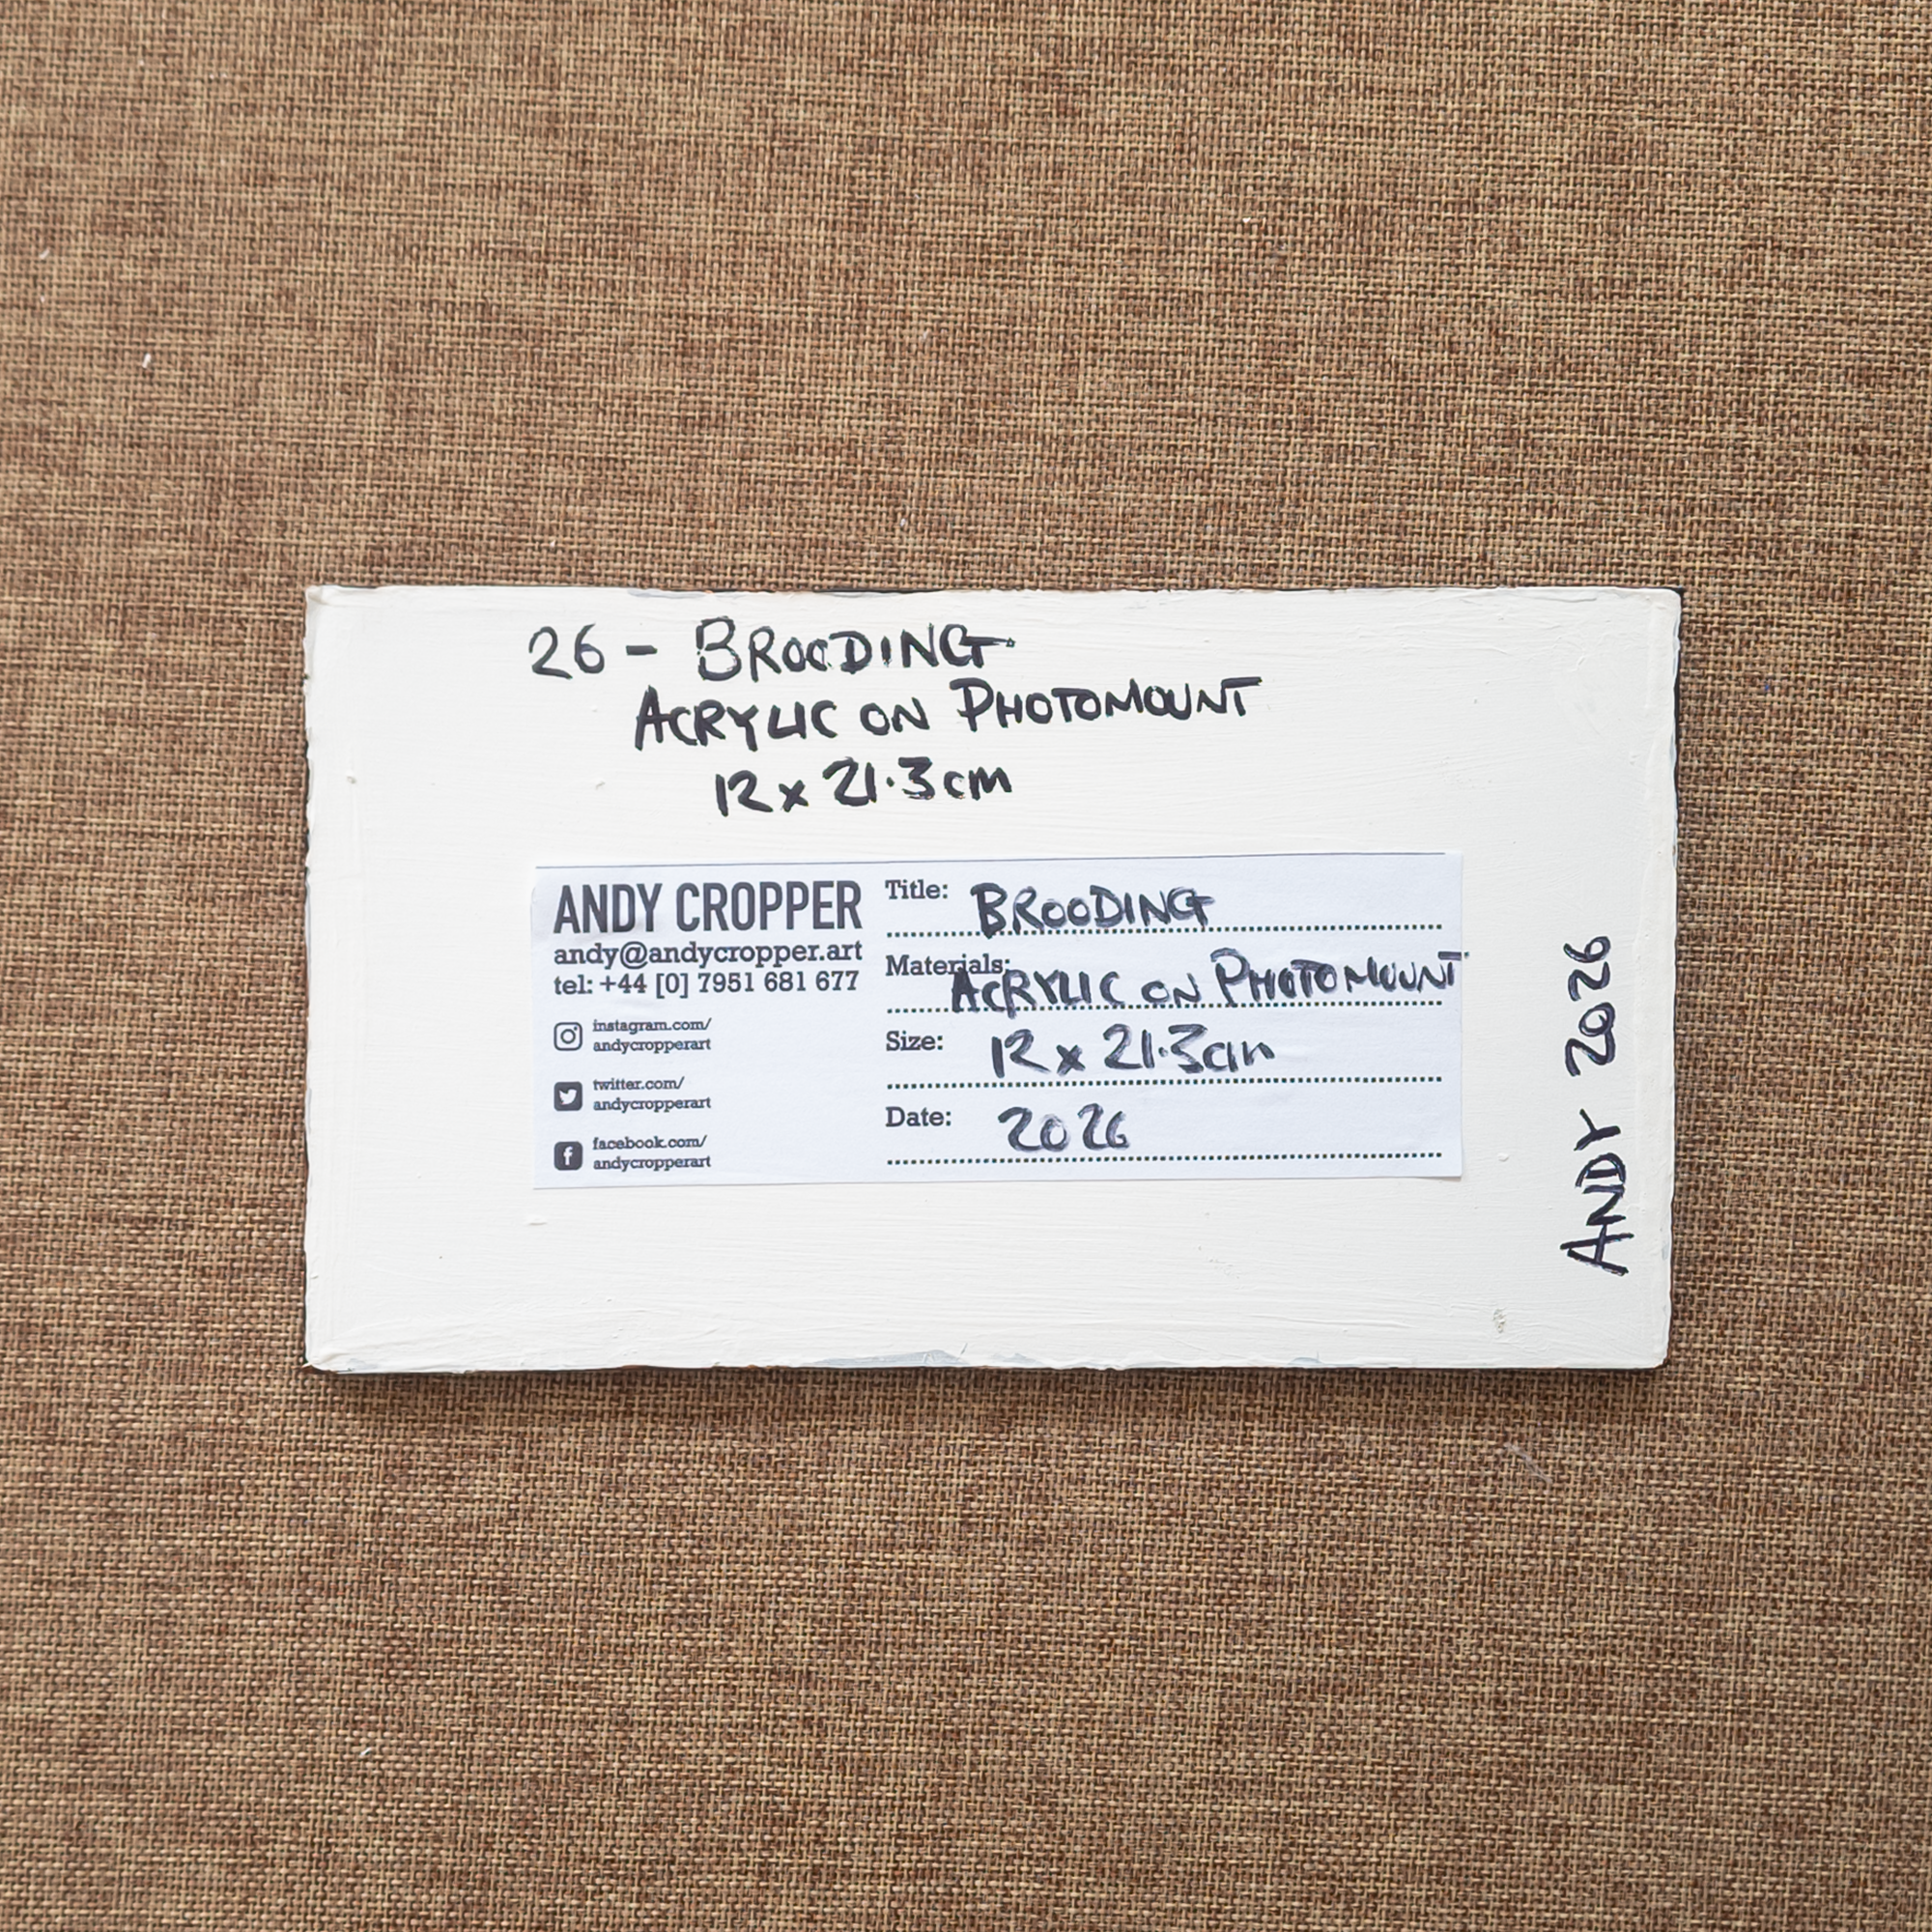 26 - BROODING
ACRYLIC ON PHOTOMOUNT
12 x 21.3cm
ANDY CROPPER
andy@andycropper.art
tel: +44 [0] 7951 681 677
instagram.com/
andycropperart
twitter.com/
andycropperart
facebook.com/
andycropperart
Title: BROODING
Materials: ACRYLIC ON PHOTOMOUNT
Size: 12 x 21.3cm
Date: 2026
ANDY 2026